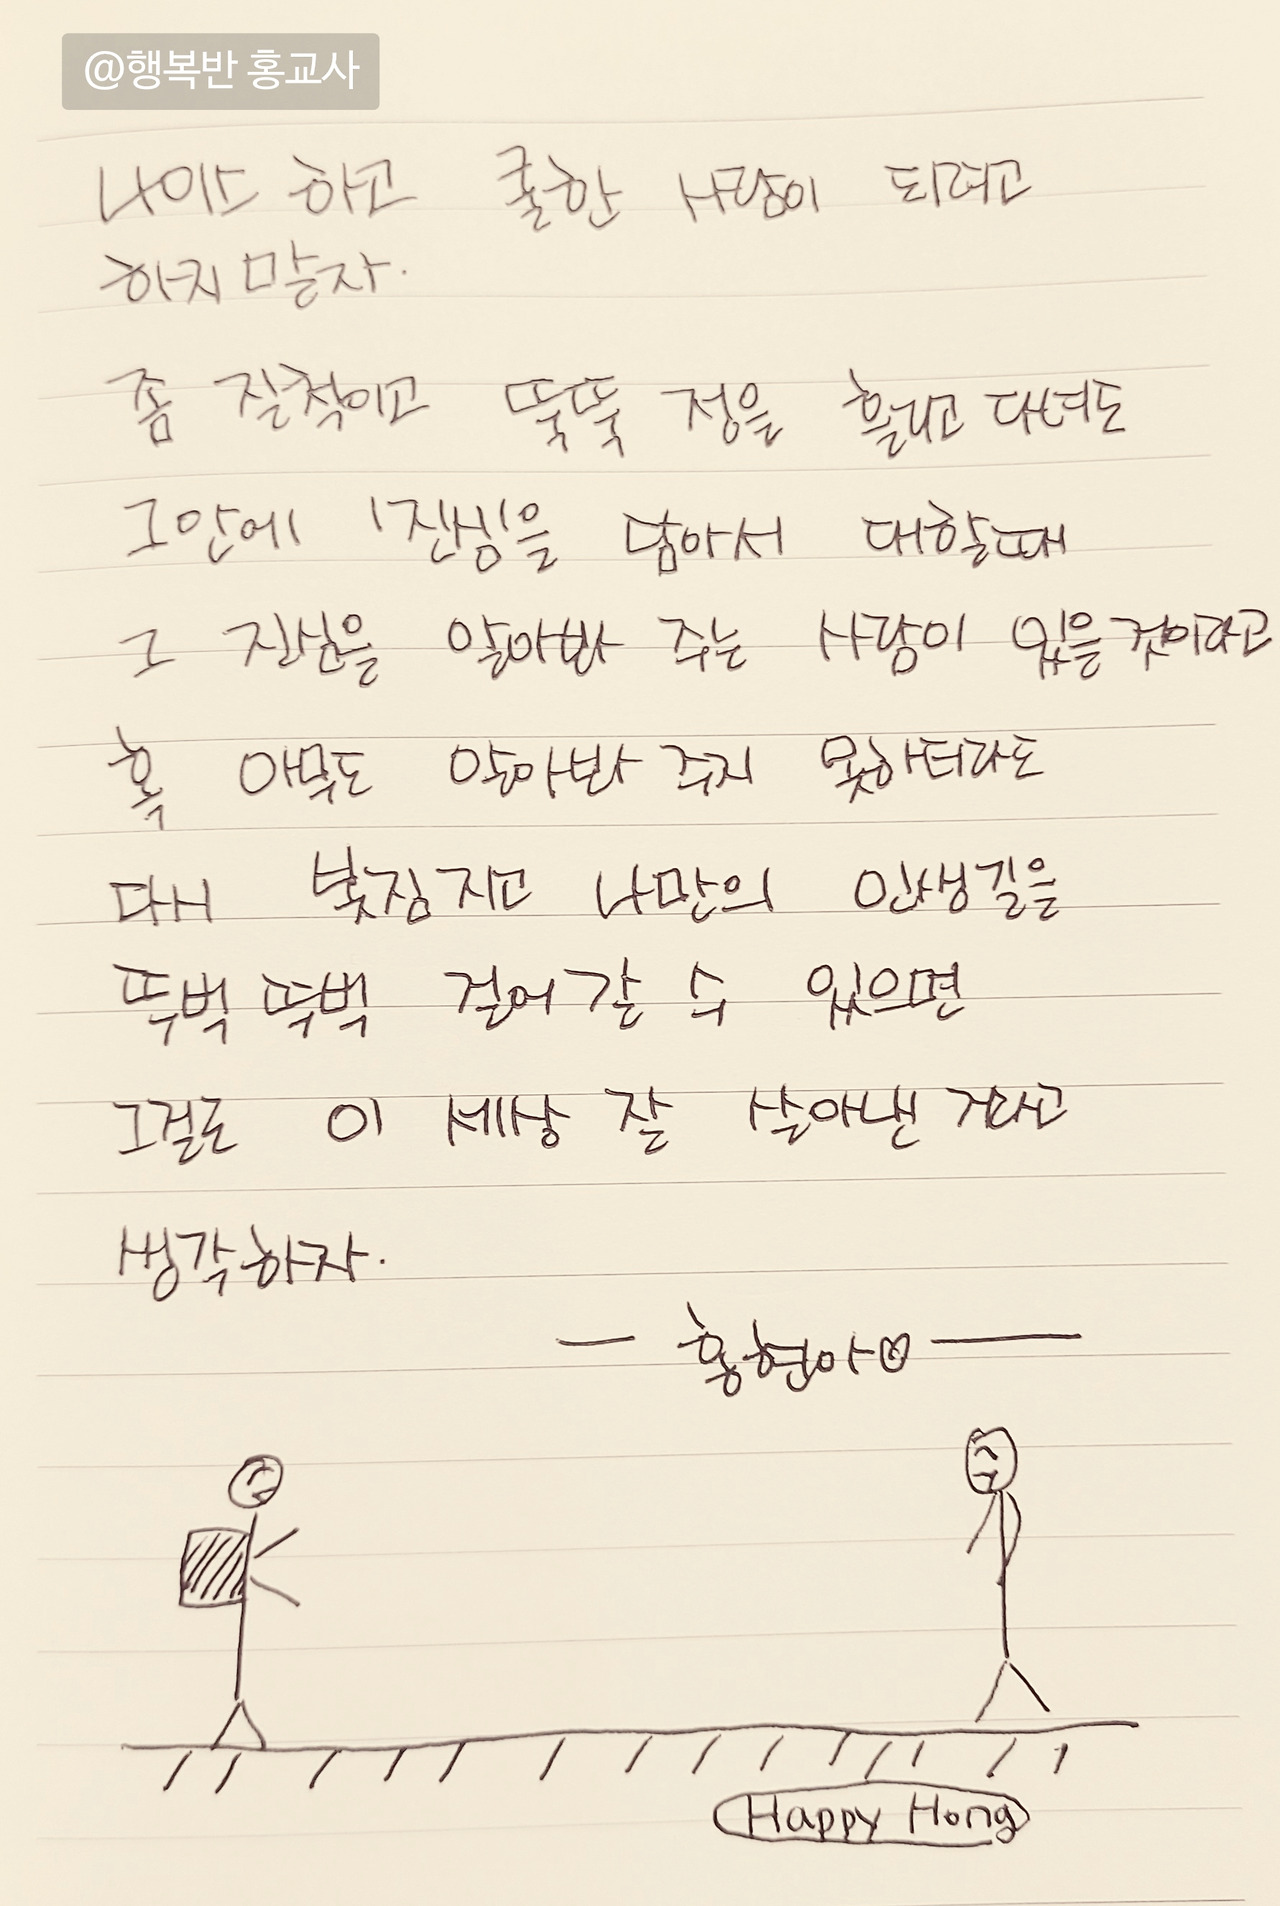 @행복반 홍교사
나이스 하고 쿨한 사람이 되려고
하지 말자.
좀 질척이고 뚝뚝 정을 흘리고 다녀도
그안에 '진심'을 담아서 대할때
그 진심을 알아봐 주는 사람이 있을것이라고
혹 아무도 알아봐 주지 못하더라도
다시 봇짐 지고 나만의 인생길을
뚜벅 뚜벅 걸어갈 수 있으면
그걸로 이 세상 잘 살아낸 거라고
생각하자.
— 홍현아♡ —
Happy Hong